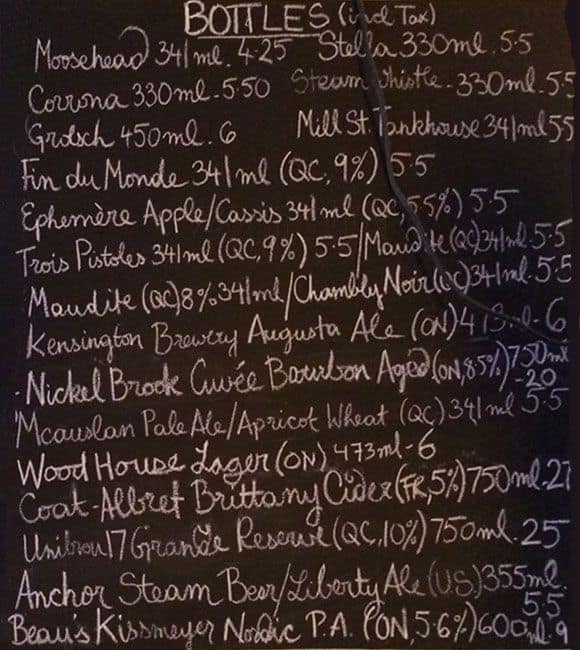 BOTTLES (incl Tax)
Moosehead 341ml. 4.25 Stella 330ml. 5.5
Corrona 330ml. 5.50 Steam Whistle. 330ml. 5.5
Grolsch 450ml. 6 Mill St. Tankhouse 341ml 55
Fin du Monde 341ml (QC, 9%) 5.5
Ephemère Apple/Cassis 341ml (QC, 5.5%) 5.5
Trois Pistoles 341ml (QC, 9%) 5.5/Maudite (QC) 341ml. 5.5
Maudite (QC) 8% 341ml/Chambly Noir (QC) 341ml. 5.5
Kensington Brewery Augusta Ale (ON) 473ml-6
. Nickel Brook Cuvée Bourbon Aged (ON, 8.5%) 750ml
-20
Mcauslan Pale Ale/Apricot Wheat (QC) 341ml 5.5
Wood House Lager (ON) 473ml-6
Coat-Albret Brittany Cider (FR, 5%) 750ml. 27
Unibrou 17 Grande Reserve (QC, 10%) 750ml. 25
Anchor Steam Beer/Liberty Ale (U.S) 355ml.
5.5
Beau's Kissmeyer Nordic P.A. (ON, 5.6%) 600ml. 9